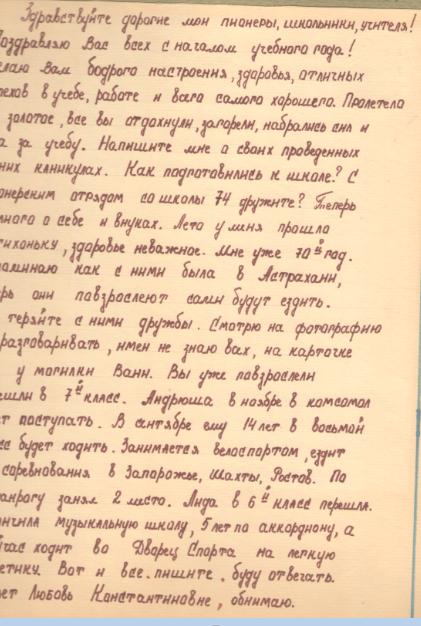 Здравствуйте дорогие мои пионеры, школьники, учителя!
Поздравляю Вас всех с началом учебного года!
елаю Вам бодрого настроения, здоровья, отличных
пехов в учебе, работе и всего самого хорошего. Пролетело
золотое, все вы отдохнули, загорели, набрались сил и
а за учебу. Напишите мне о своих проведенных
них каникулах. Как подготовились к школе? С
онерским отрядом со школы 74 дружите? Теперь
много о себе и внуках. Лето у меня прошло
тихоньку, здоровье неважное. Мне уже 70й год.
поминаю как с ними была в Астрахани,
рь они повзрослеют сами будут ездить.
теряйте с ними дружбы. Смотрю на фотографию
разговаривать, имен не знаю вах, на карточке
у могилки Вани. Вы уже повзрослели
ешли в 7й класс. Андрюша в ноябре в комсомол
ет поступать. В сентябре ему 14 лет в восьмой
сс будет ходить. Занимается велоспортом, ездит
соревнования в Запорожье, Шахты, Ростов. По
ганрогу занял 2 место. Лида в 6й класс перешла.
ончила музыкальную школу, 5 лет по аккордиону, а
йчас ходит во Дворец Спорта на легкую
летику. Вот и все. пишите. буду отвечать.
ет Любовь Константиновне, обнимаю.